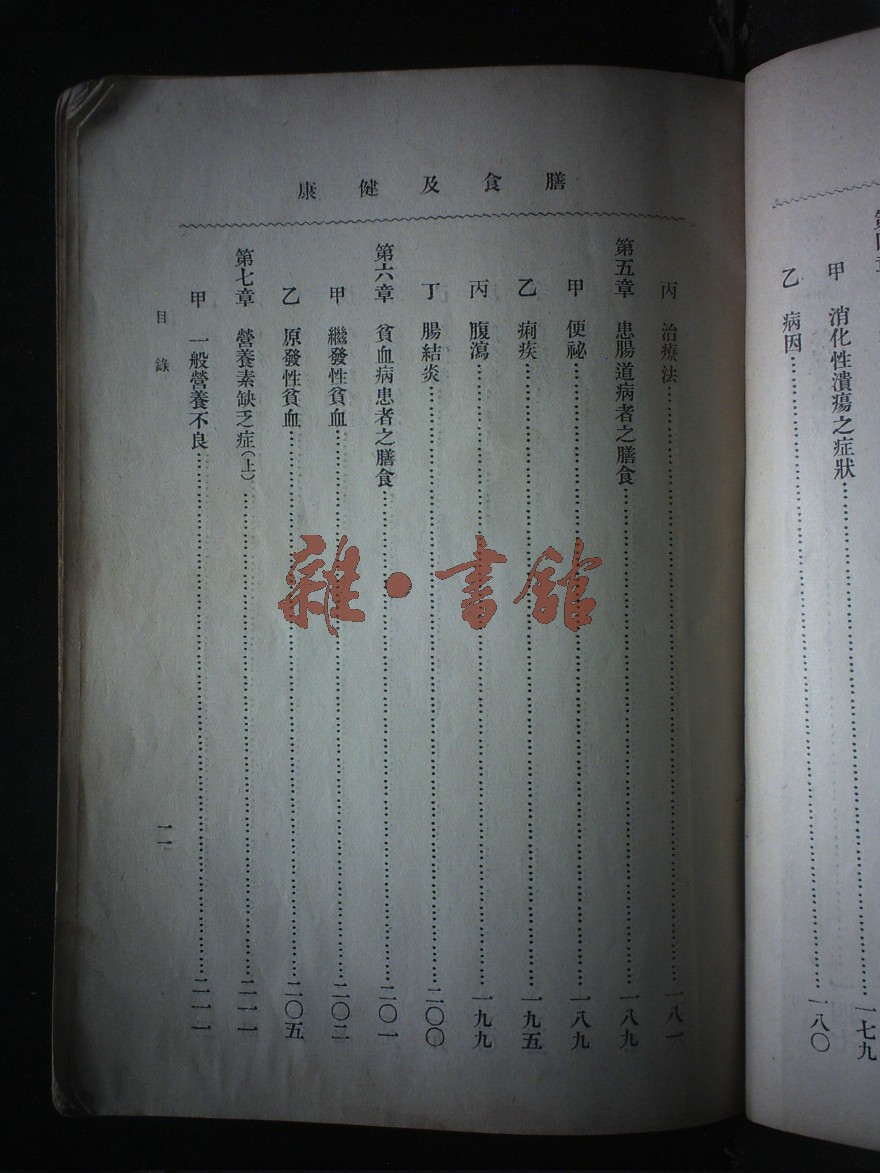 甲 消化性潰瘍之症狀……一七九
乙 病因……一八〇
膳食及健康
丙 治療法……一八一
第五章 患腸道病者之膳食……一八九
甲 便祕……一八九
乙 痢疾……一九五
丙 腹瀉……一九九
丁 腸結炎……二〇〇
第六章 貧血病患者之膳食……二〇一
甲 繼發性貧血……二〇二
乙 原發性貧血……二〇五
第七章 營養素缺乏症(上)……二一一
甲 一般營養不良……二一一
目錄 一一
雜·書館